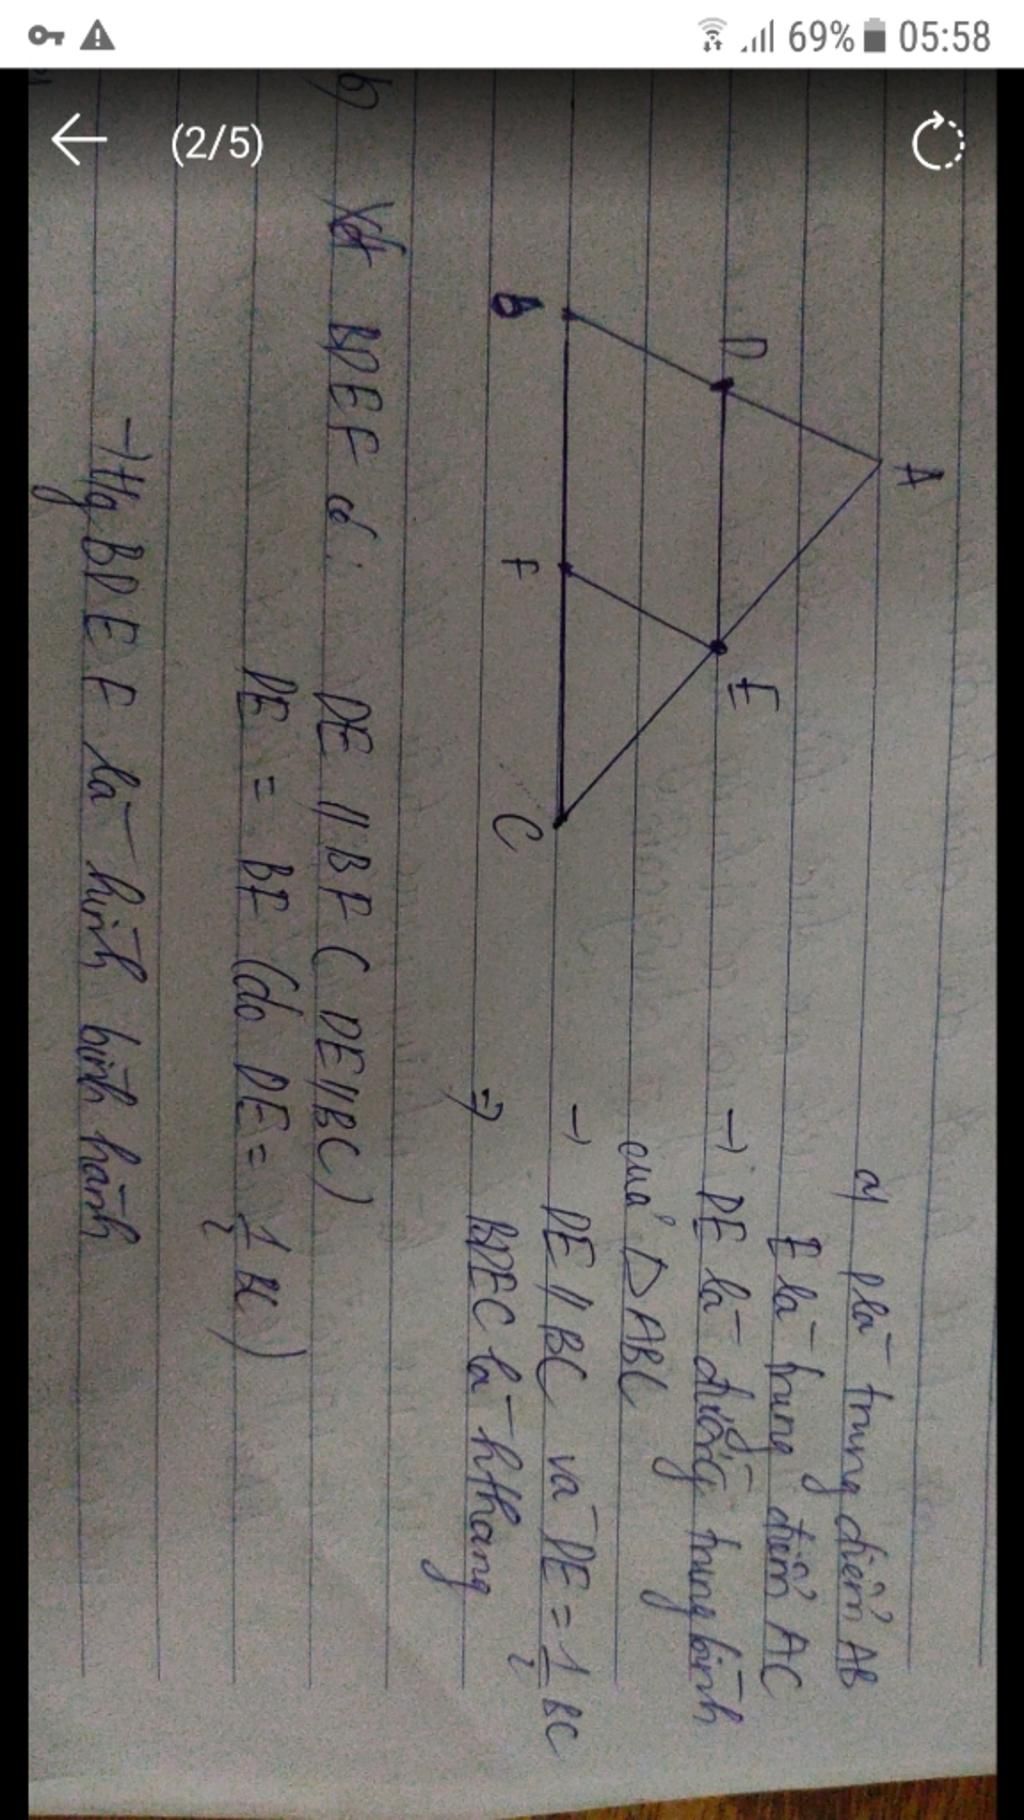 69% 05:58
(2/5)
A
D
E
B
F
C
a) D là trung điểm AB
E là trung điểm AC
→ DE là đường trung bình
của Δ ABC
→ DE // BC và DE = 1/2 BC
⇒ BDEC là hthang
b) Xét BDEF có: DE // BF ( DE // BC )
DE = BF (do DE = 1/2 BC )
→ Hg BDEF là hình bình hành